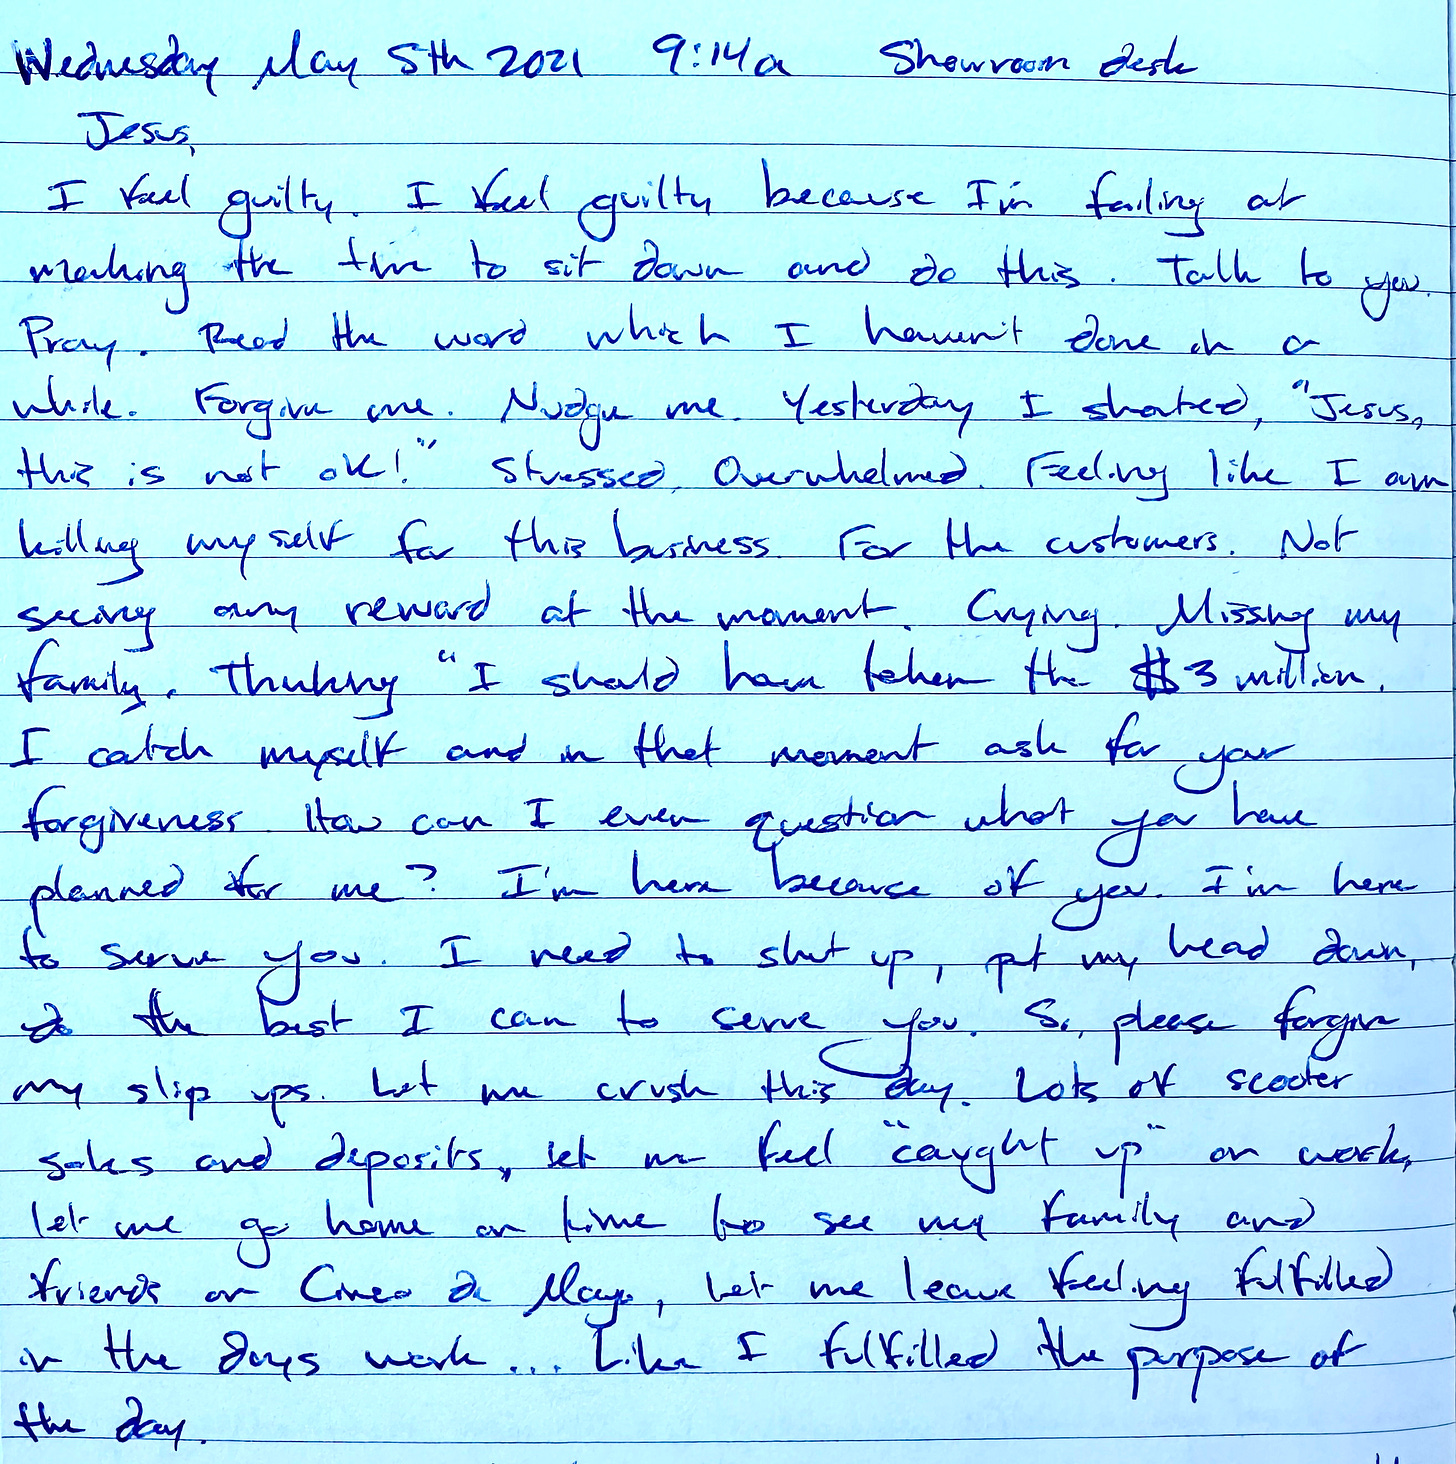 Wednesday May 5th 2021 9:14a Showroom desk
Jesus,
I feel guilty. I feel guilty because I'm failing at
making the time to sit down and do this. Talk to you.
Pray. Read the word which I haven't done in a
while. Forgive me. Nudge me. Yesterday I shouted, "Jesus,
this is not ok!" Stressed. Overwhelmed. Feeling like I am
killing myself for this business. For the customers. Not
seeing any reward at the moment. Crying. Missing my
family. Thinking "I should have taken the $3 million.
I catch myself and in that moment ask for your
forgiveness. How can I even question what you have
planned for me? I'm here because of you. I'm here
to serve you. I need to shut up, put my head down,
do the best I can to serve you. So, please forgive
my slip ups. Let me crush this day. Lots of scooter
sales and deposits, let me feel "caught up" on work,
let me go home on time to see my family and
friends on Cinco de Mayo, let me leave feeling fulfilled
in the days work... Like I fulfilled the purpose of
the day.